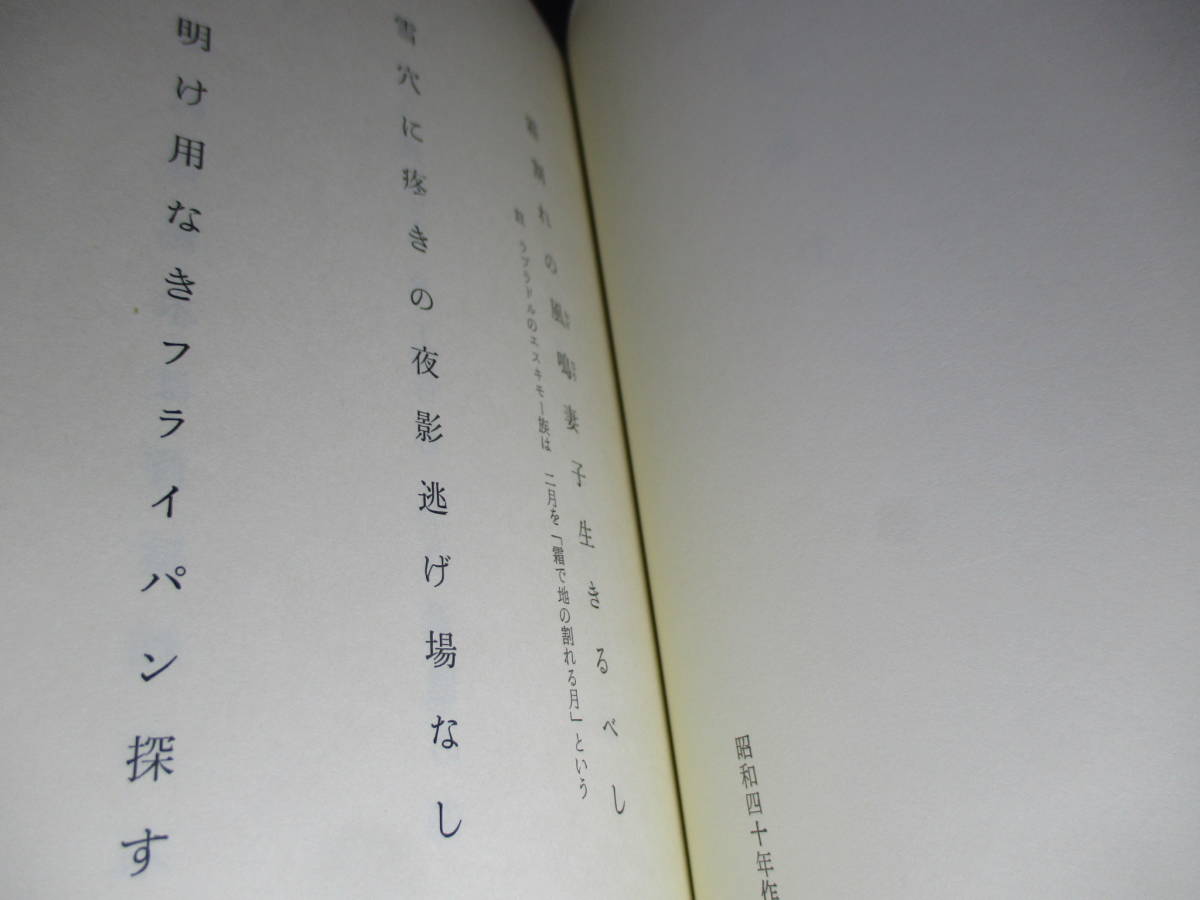 昭和四十年作
霜割れの風鳴妻子生きるべし
註 ラブラドルのエスキモー族は 二月を「霜で地の割れる月」という
雪穴に疼きの夜影逃げ場なし
明け用なきフライパン探す